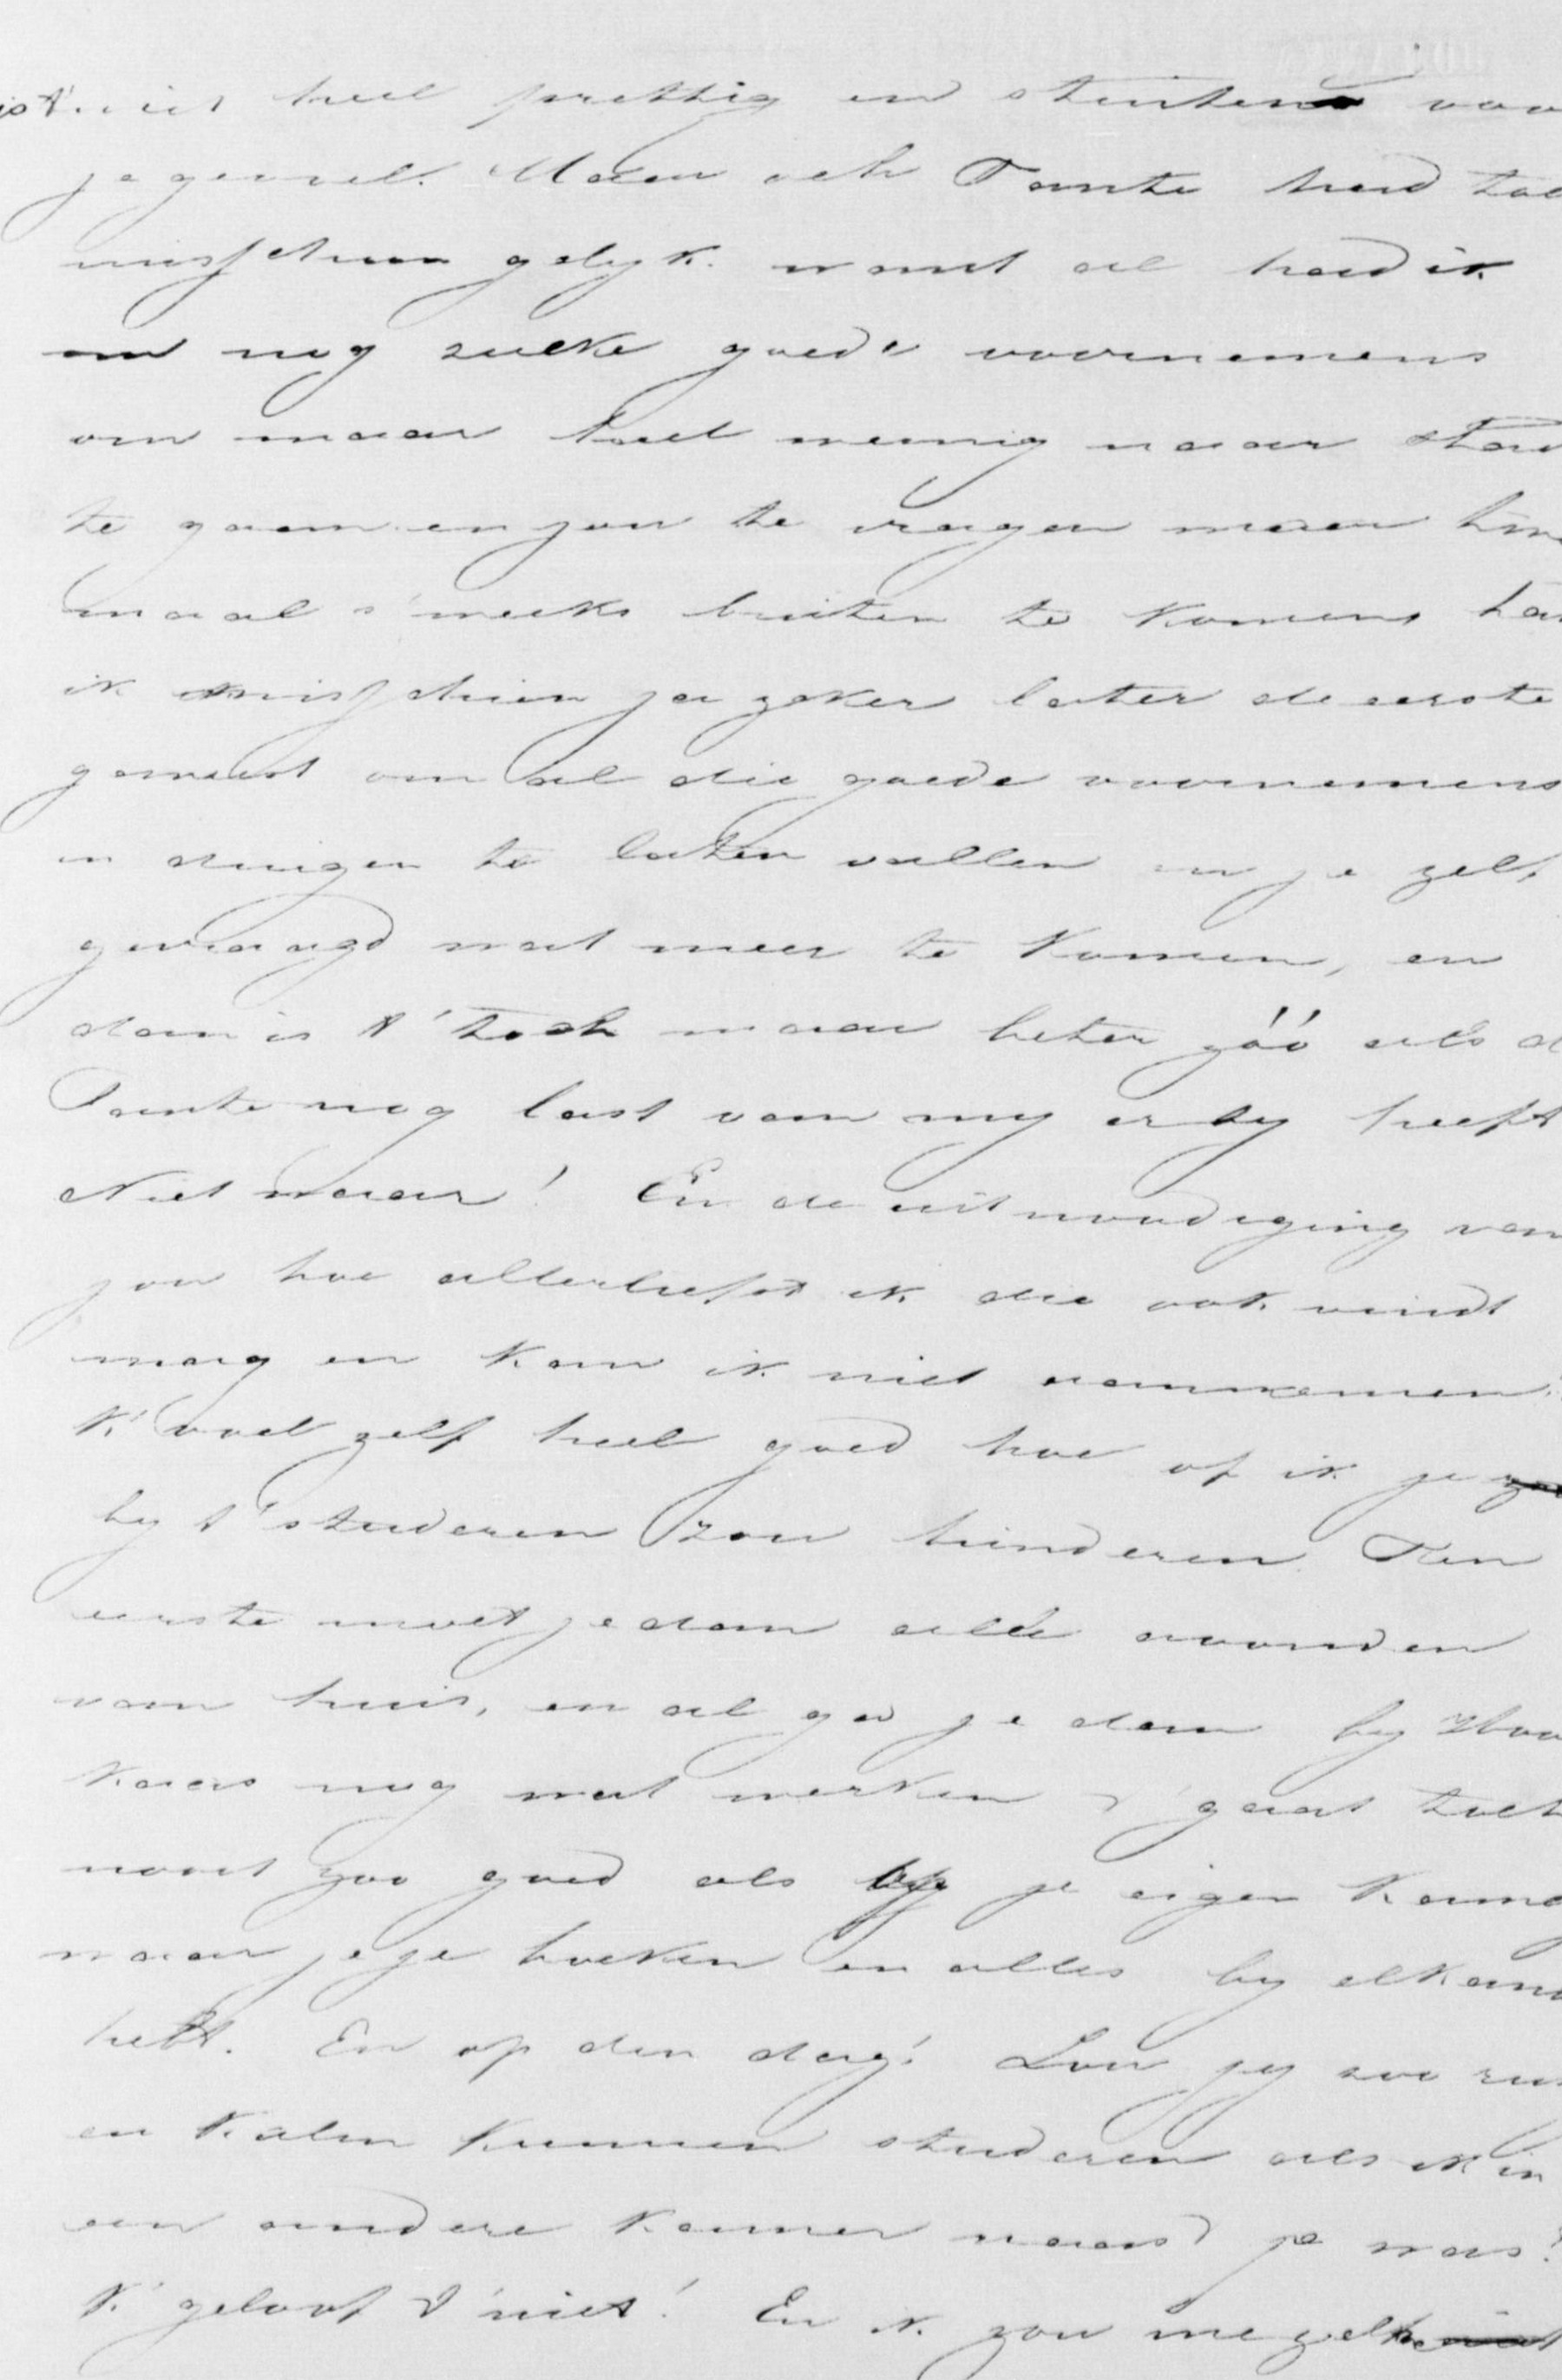 is t' niet heel prettig en
je gevoel. Maar ach Tante had toc
misschien gelyk. want al had ik
nu nog zulke goede voornemens
om maar heel weinig naar stad
te gaan en jou te vragen maar
maal s'weeks buiten te komen, ha
ik misschien ja zeker later de eerste
geweest om al die goede voornemens
in duigen te laten vallen en je zelf
gevraagd wat meer te komen, en
dan is t' toch maar beter zóó als d
Tante nog last van my erby heeft
Niet waar! En de uitnoodiging van
jou hoe allerliefst ik die ook vindt
mag en kan ik niet aannemen.
K' voel zelf heel goed hoe of ik je
by t' studeren zou hinderen. Ten
eerste moet je dan alle avonden
van huis, en al ga je dan by
nog wat werken t' gaat toch
nooit zoo goed als op je eigen kame
waar je je boeken en alles by elkan
hebt. En op den dag! Zou jy zoo rus
en kalm kunnen studeren als ik in
een andere kamer naast je was?
K' geloof t' niet! En ik zou me zelf